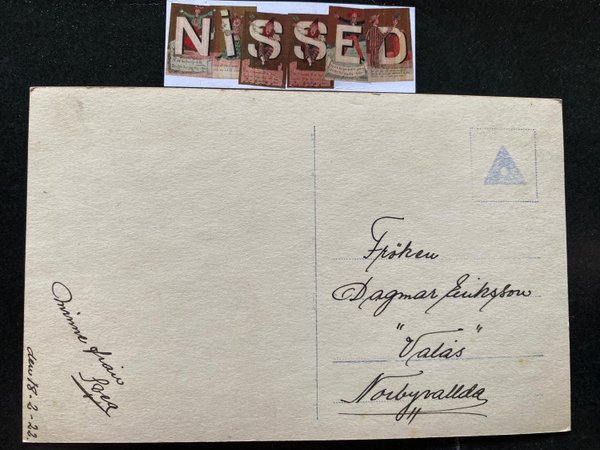 NISSED
Fröken
Dagmar Eriksson
"Valås"
Norbyvallda
Minne från
den 18-2-22